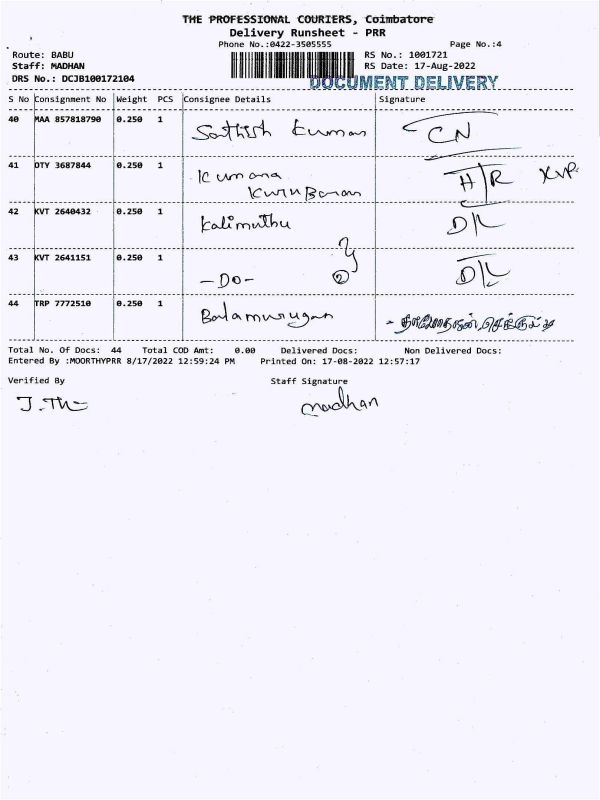 THE PROFESSIONAL COURIERS, Coimbatore
Delivery Runsheet - PRR
Phone No.:0422-3505555 Page No.:4
Route: BABU RS No.: 1001721
Staff: MADHAN RS Date: 17-Aug-2022
DRS No.: DCJB100172104 DOCUMENT DELIVERY
S No Consignment No Weight PCS Consignee Details Signature
40 MAA 857818790 0.250 1 Sathish Kumar CN
41 DTY 3687844 0.250 1 Kumana H/R
KuruBaran
42 KVT 2640432 0.250 1 Kalimuthu D/L
43 KVT 2641151 0.250 1 -DO- 2 D/L
44 TRP 7772510 0.250 1 Balamurugan
Total No. Of Docs: 44 Total COD Amt: 0.00 Delivered Docs: Non Delivered Docs:
Entered By :MOORTHYPRR 8/17/2022 12:59:24 PM Printed On: 17-08-2022 12:57:17
Verified By Staff Signature
madhan